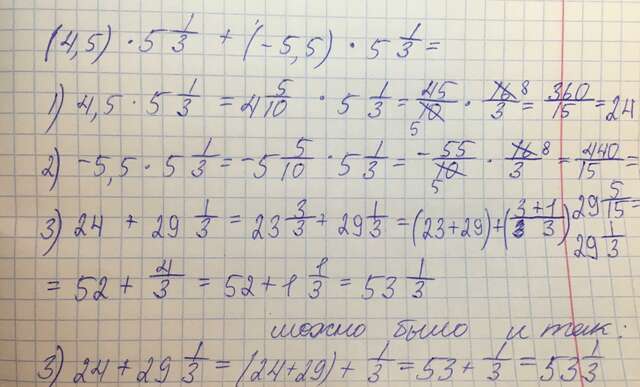 (4,5) · 5 1/3 + (-5,5) · 5 1/3 =
1) 4,5 · 5 1/3 = 4 5/10 · 5 1/3 = 45/10 5 · 16/3 8 = 360/15 = 24
2) -5,5 · 5 1/3 = -5 5/10 · 5 1/3 = -55/10 5 · 16/3 8 = 440/15 = 29 5/15 = 29 1/3
3) 24 + 29 1/3 = 23 3/3 + 29 1/3 = (23+29) + (3+1/3 3)
= 52 + 4/3 = 52 + 1 1/3 = 53 1/3
можно было и так:
3) 24 + 29 1/3 = (24+29) + 1/3 = 53 + 1/3 = 53 1/3